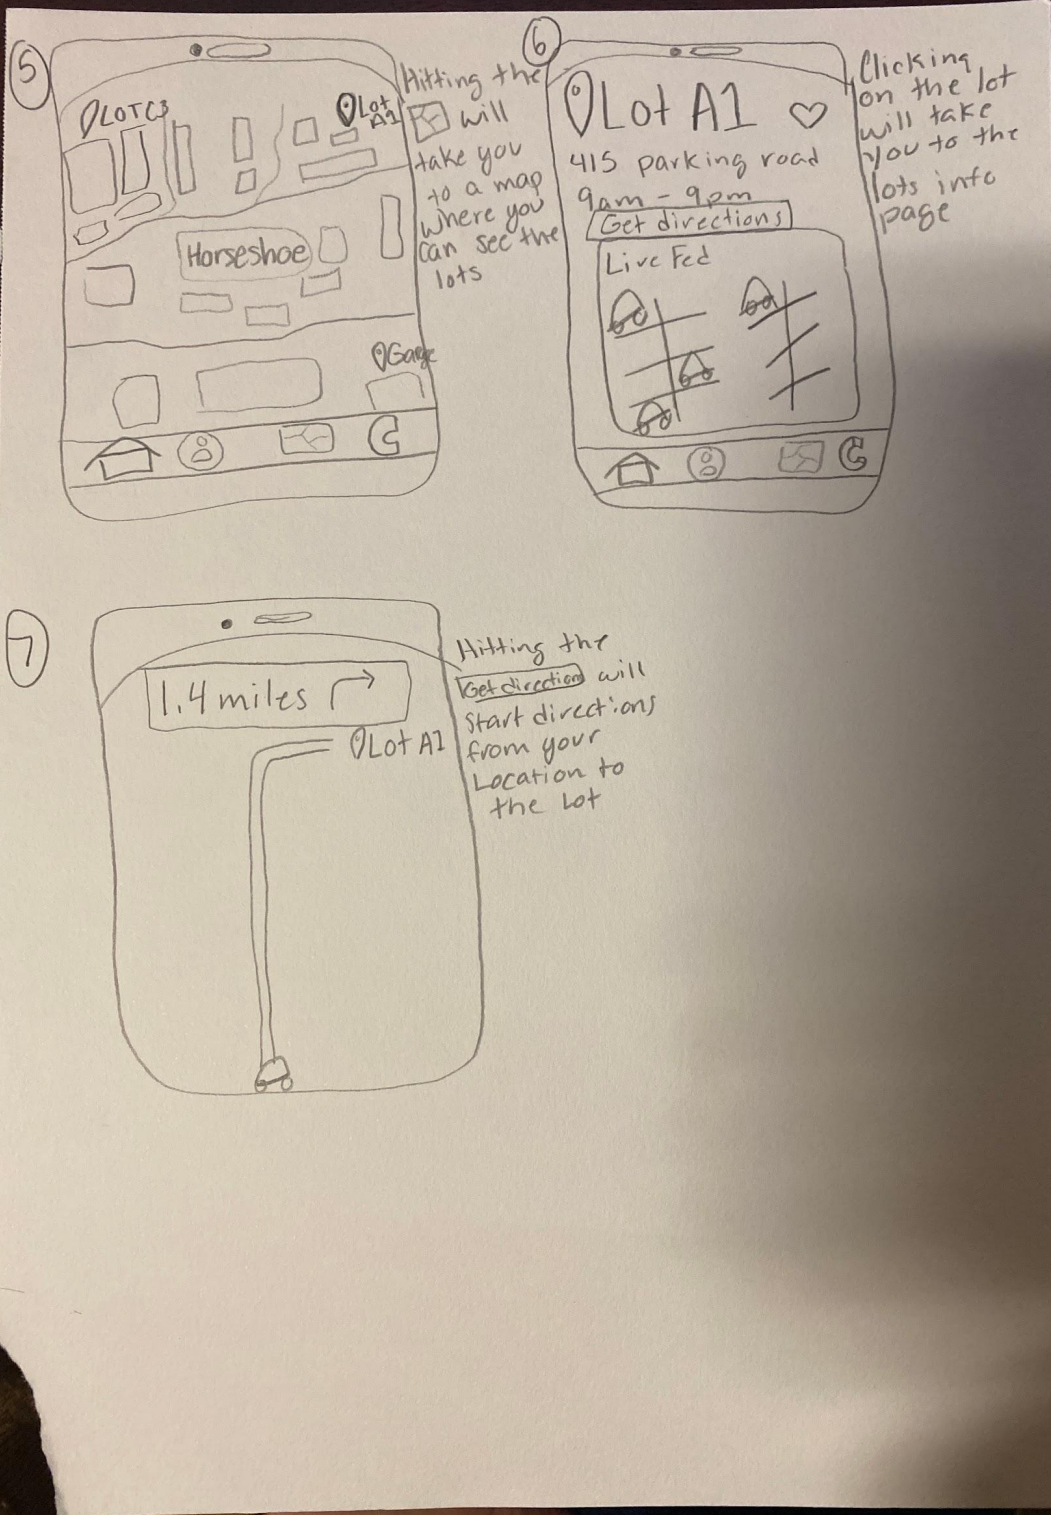 5
LOTC3
Lot
A1
Horseshoe
Garge
C
Hitting the
will
take you
to a map
where you
can see the
lots
6
Lot A1
415 parking road
9am - 9pm
Get directions
Live Fed
C
Clicking
on the lot
will take
you to the
lots info
page
7
1.4 miles
Lot A1
Hitting the
Get direction will
Start directions
from your
Location to
the Lot